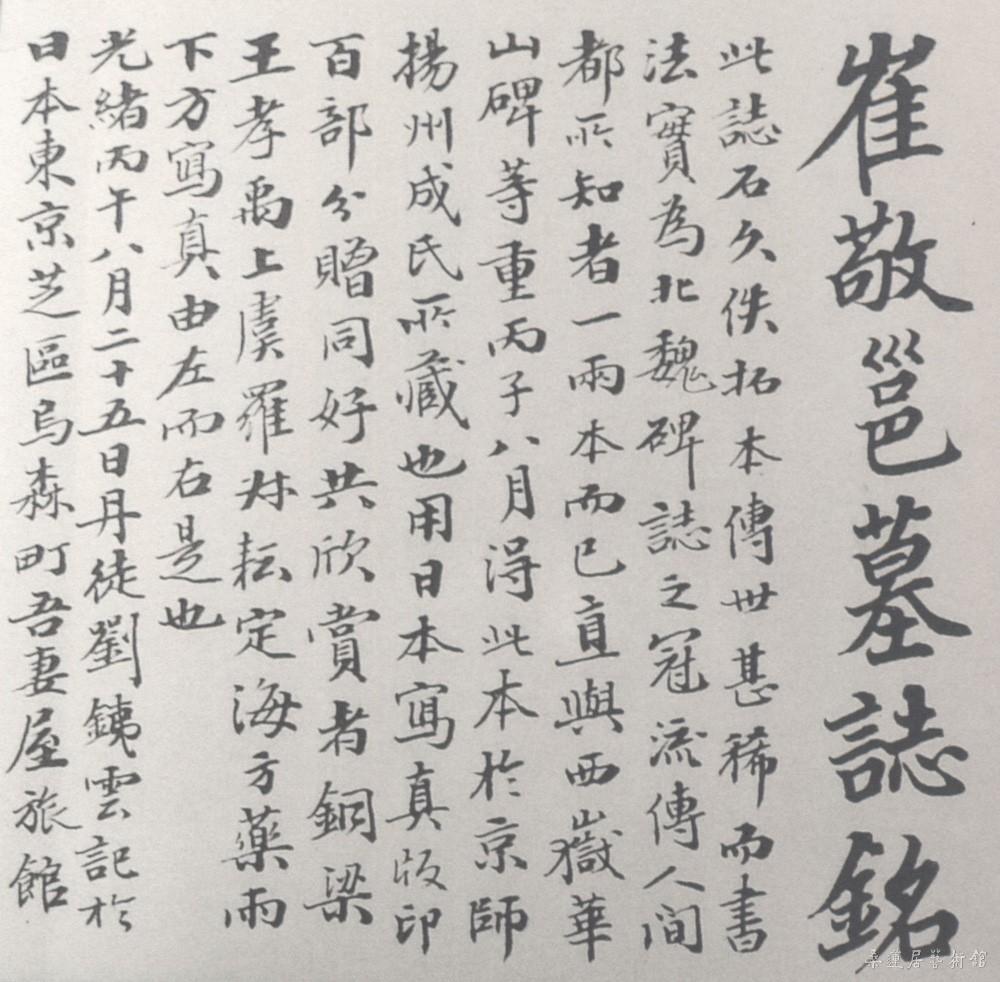 崔敬邕墓誌銘
此誌石久佚拓本傳世甚稀而書
法實為北魏碑誌之冠流傳人間
都所知者一兩本而已直與西嶽華
山碑等重丙子八月得此本於京師
揚州成氏所藏也用日本寫真版印
百部分贈同好共欣賞者銅梁
王孝禹上虞羅叔耘定海方藥雨
下方寫真由左而右是也
光緒丙午八月二十五日丹徒劉鐵雲記於
日本東京芝區烏森町吾妻屋旅館
桑蓮居藝術館